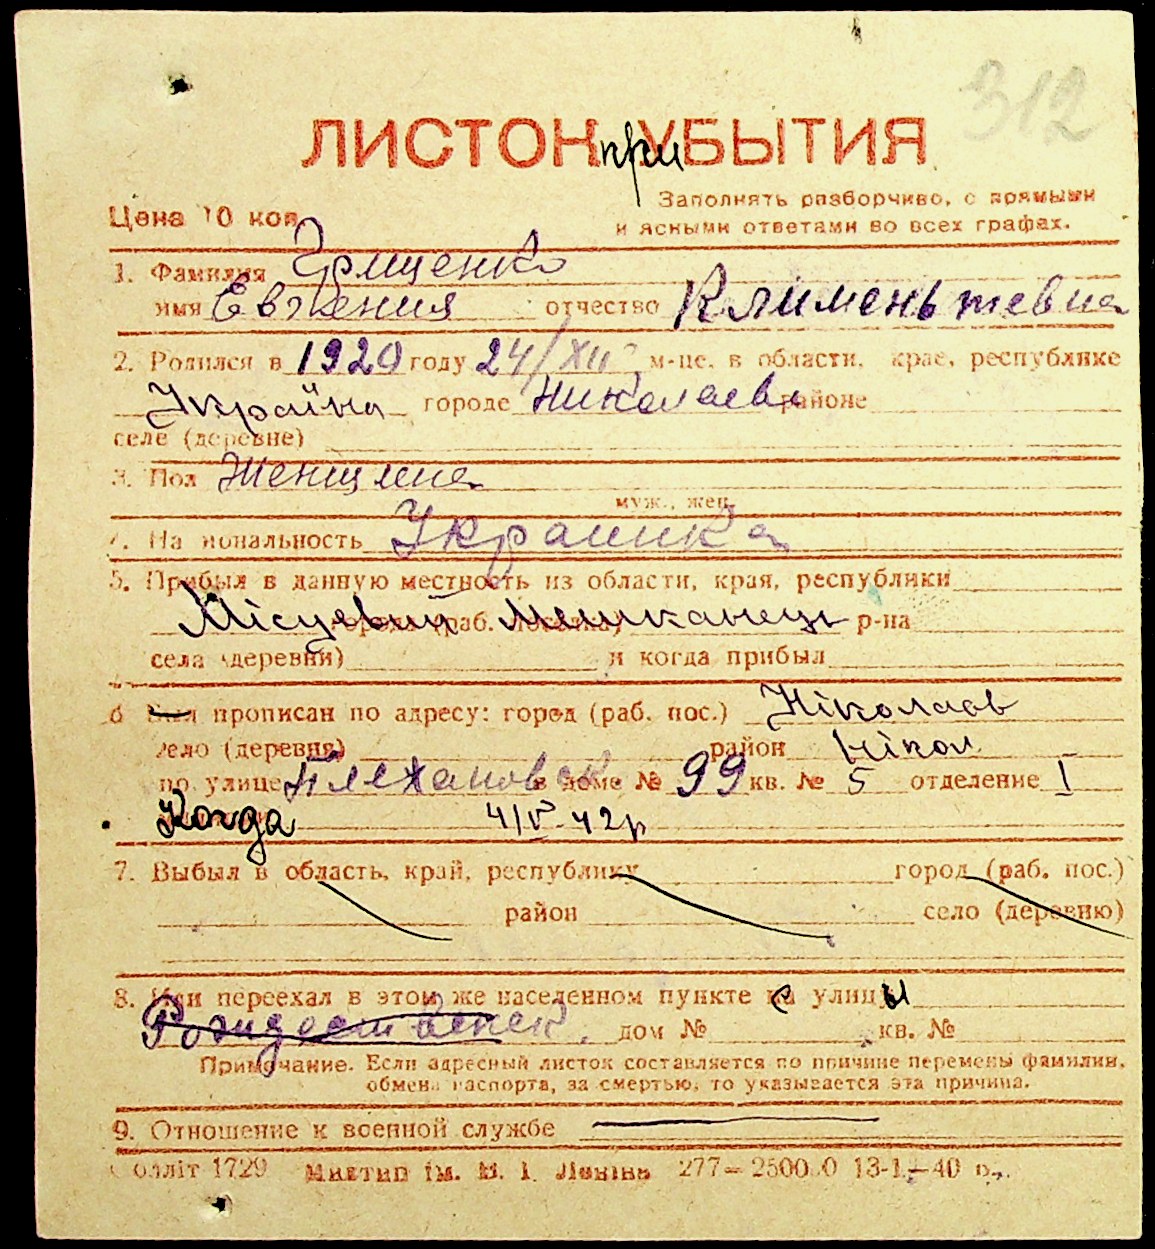 312
ЛИСТОК при УБЫТИЯ
Заполнять разборчиво, с прямыми
Цена 10 коп. и ясными ответами во всех графах.
1. Фамилия Грищенко
имя Евгения отчество Клименьтевна
2. Родился в 1920 году 24/XII м-це, в области, крае, республике
Україна городе Николаев районе
селе (деревне)
3. Пол Женщина
муж., жен.
4. Национальность Украинка
5. Прибыл в данную местность из области, края, республики
Місцевий города (раб. поселка) мешканець р-на
села (деревни) и когда прибыл
6 Был прописан по адресу: город (раб. пос.) Ніколаєв
село (деревня) район Нікол
по улице Плехановск в доме № 99 кв. № 5 отделение I
Когда 4/V-42р
7. Выбыл в область, край, республику город (раб. пос.)
район село (деревню)
8. Или переехал в этом же населенном пункте с улицы
Рождественск. дом № кв. №
Примечание. Если адресный листок составляется по причине перемены фамилии,
обмена паспорта, за смертью, то указывается эта причина.
9. Отношение к военной службе
Облліт 1729 ім. В. І. Леніна 277—2500 0 13-1—40 р.